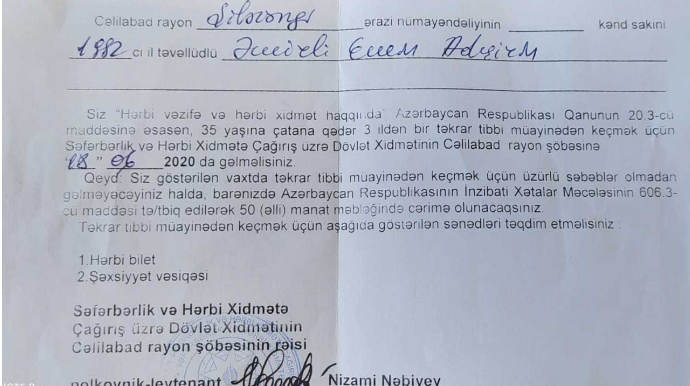 Cəlilabad rayon ərazi nümayəndəliyinin kənd sakini
1982 ci il təvəllüdlü Əmirli
Siz "Hərbi vəzifə və hərbi xidmət haqqında" Azərbaycan Respublikası Qanunun 20.3-cü
maddəsinə əsasən, 35 yaşına çatana qədər 3 ildən bir təkrar tibbi müayinədən keçmək üçün
Səfərbərlik və Hərbi Xidmətə Çağırış üzrə Dövlət Xidmətinin Cəlilabad rayon şöbəsinə
" 06 2020 da gəlməlisiniz.
Qeyd: Siz göstərilən vaxtda təkrar tibbi müayinədən keçmək üçün üzürlü səbəblər olmadan
gəlməyəcəyiniz halda, barənizdə Azərbaycan Respublikasının İnzibati Xətalar Məcələsinin 606.3-
cü maddəsi tə/tbiq edilərək 50 (əlli) manat məbləğində cərimə olunacaqsınız.
Təkrar tibbi müayinədən keçmək üçün aşağıda göstərilən sənədləri təqdim etməlisiniz :
1.Hərbi bilet
2.Şəxsiyyət vəsiqəsi
Səfərbərlik və Hərbi Xidmətə
Çağırış üzrə Dövlət Xidmətinin
Cəlilabad rayon şöbəsinin rəisi
polkovnik-leytenant Nizami Nəbiyev